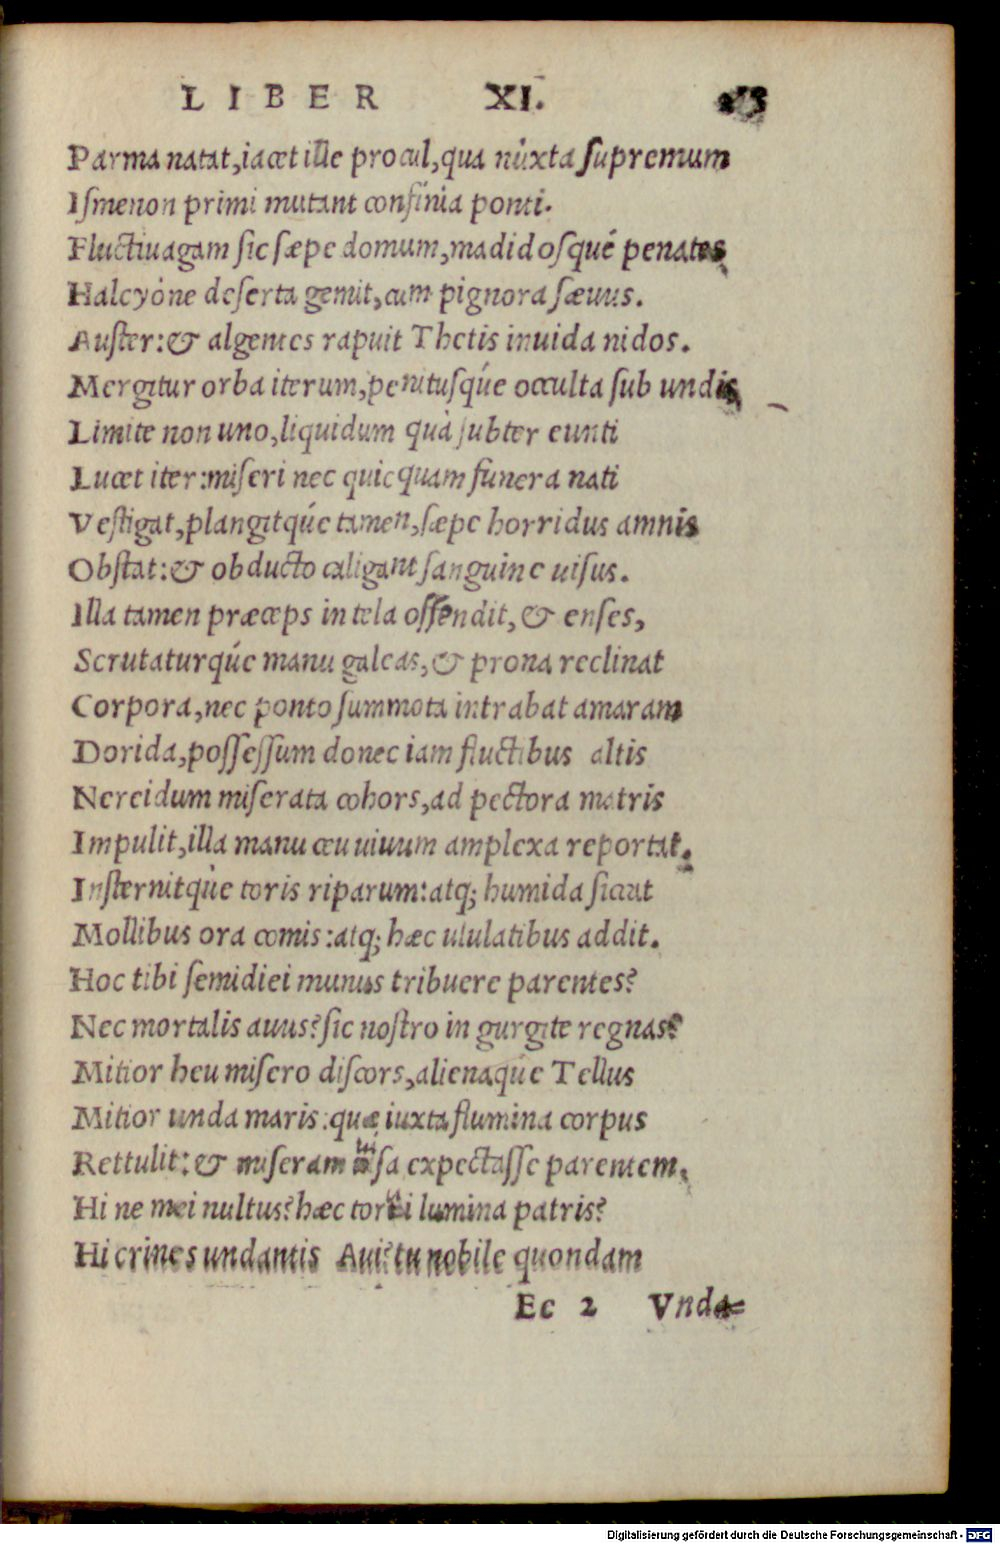 LIBER XI.
Parma natat, iacet ille procul, qua mixta supremum
Ismenon primi mutant confinia ponti.
Fluctiuagam sic sæpe domum, madidosqué penates
Halcyone deserta gemit, cum pignora sæuus.
Auster: & algentes rapuit Thetis inuida nidos.
Mergitur orba iterum, penitusqúe occulta sub undis
Limite non uno, liquidum quà subter eunti
Lucet iter: miseri nec quicquam funera nati
Vestigat, plangitqúe tamen, sæpe horridus amnis
Obstat: & obducto caligant sanguine uisus.
Illa tamen præceps in tela offendit, & enses,
Scrutaturqúe manu galeas, & prona reclinat
Corpora, nec ponto summota intrabat amaram
Dorida, possessum donec iam fluctibus altis
Nereidum miserata cohors, ad pectora matris
Impulit, illa manu ceu uiuum amplexa reportat.
Insternitqùe toris riparum: atq; humida siccat
Mollibus ora comis: atq; hæc ululatibus addit.
Hoc tibi semidiei munus tribuere parentes?
Nec mortalis auus? sic nostro in gurgite regnas?
Mitior heu misero discors, alienaqúe Tellus
Mitior unda maris: quæ iuxta flumina corpus
Rettulit: & miseram uisa expectasse parentem.
Hi ne mei uultus? hæc torui lumina patris?
Hi crines undantis Aui? tu nobile quondam
Ee 2 Vnda=
Digitalisierung gefördert durch die Deutsche Forschungsgemeinschaft - DFG